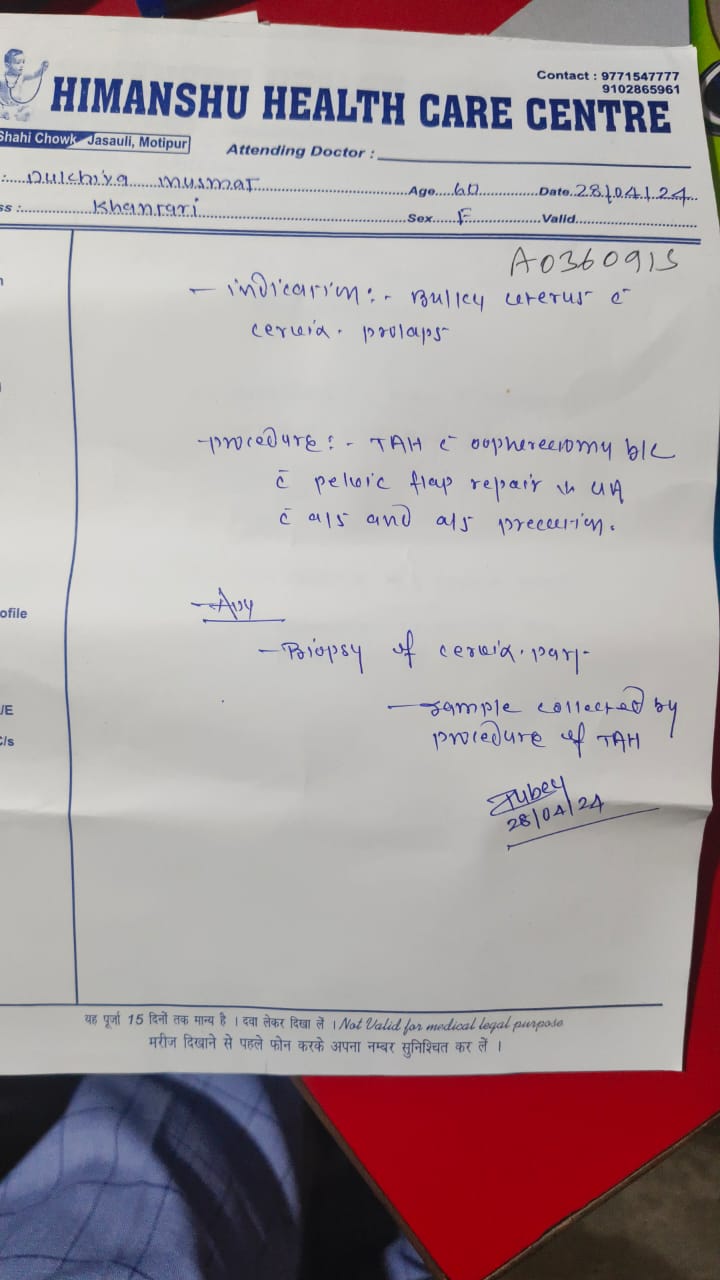 Contact : 9771547777
9102865961
HIMANSHU HEALTH CARE CENTRE
Shahi Chowk Jasauli, Motipur
Attending Doctor :
: Dulchiya musmat Age 60 Date 28/04/24
ss : Khanrari Sex F Valid
A0360915
- indication :- Bulkey uterus c̄
cervix. prolaps
- procedure :- TAH c̄ oopherectomy b/L
c̄ pelvic flap repair in UA
c̄ a/s and a/s precaution.
ofile
- Adv
- Biopsy of cervix. part
/E
- sample collected by
C/s
procedure of TAH
Dubey
28/04/24
यह पूर्जा 15 दिनों तक मान्य है । दवा लेकर दिखा लें । Not Valid for medical legal purpose
मरीज दिखाने से पहले फोन करके अपना नम्बर सुनिश्चित कर लें ।